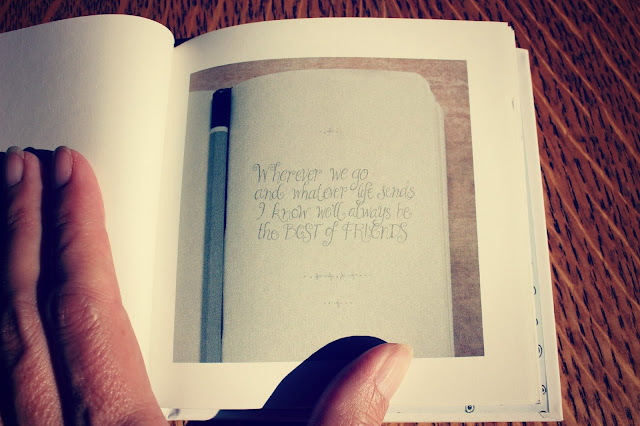 Wherever we go
and whatever life sends
I know we'll always be
the BEST of FRIENDS